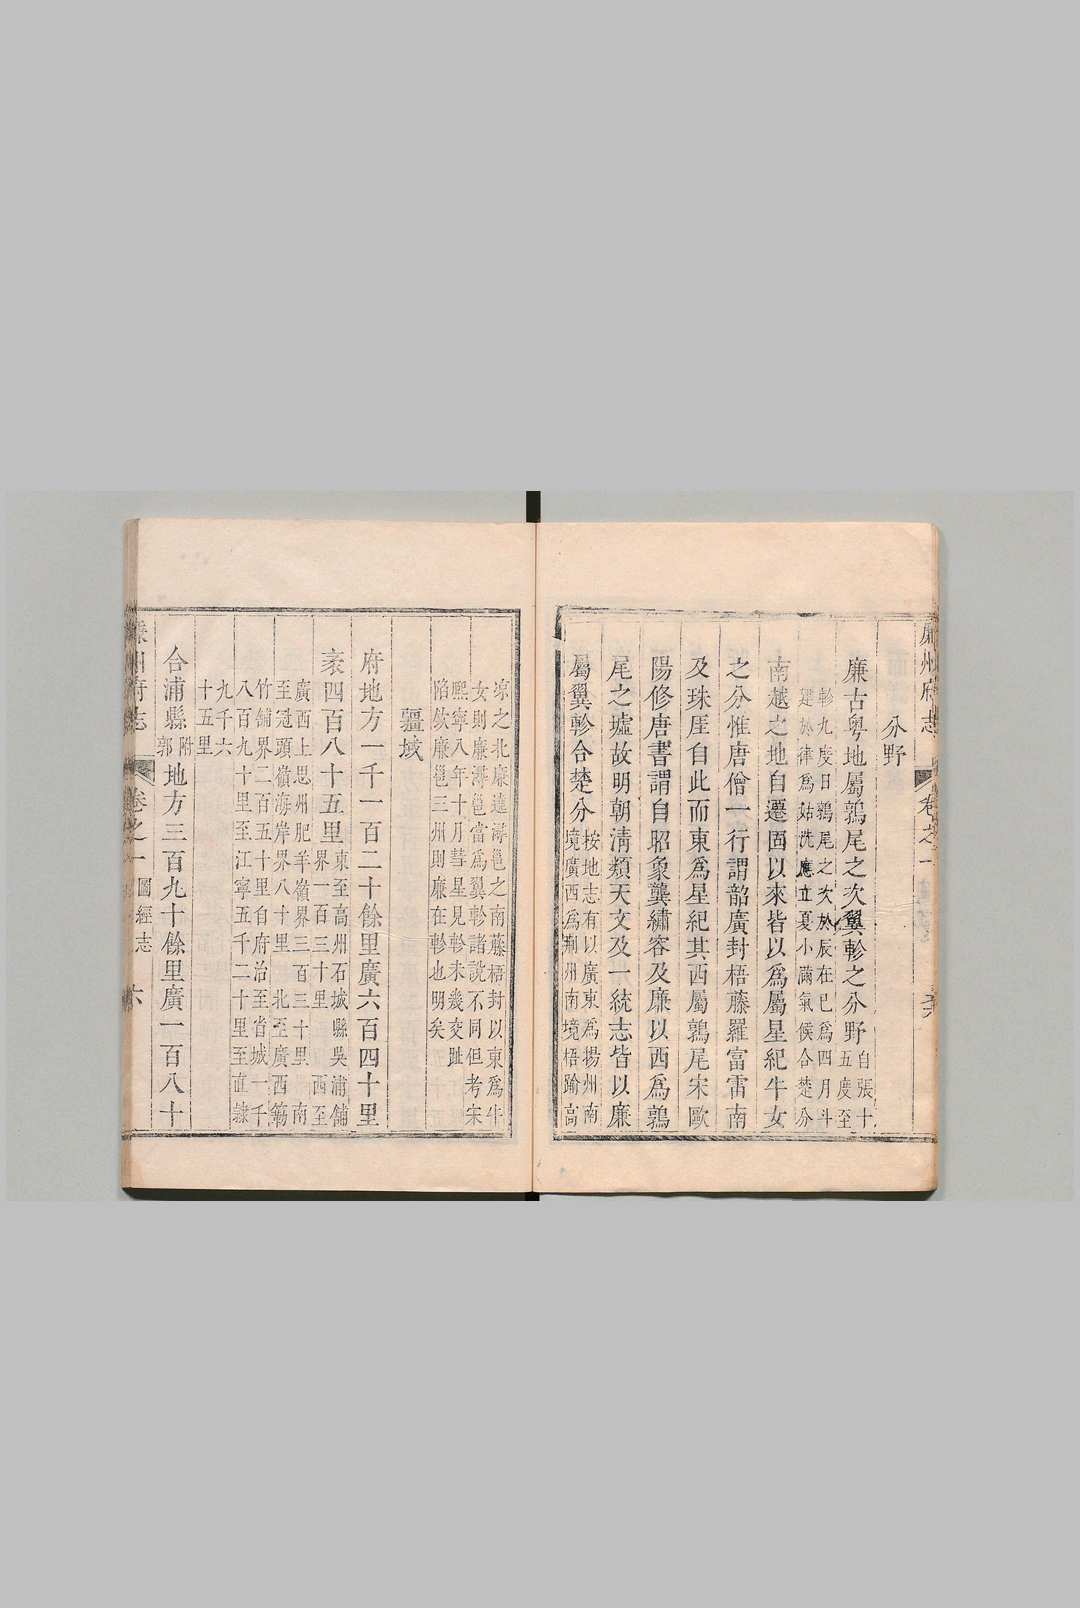 廉州府志
卷之一
分野
廉古粤地屬鶉尾之次翼軫之分野自張十
五度至
軫九度曰鶉尾之次於辰在巳爲四月斗
建於律爲姑洗應立夏小滿氣候合楚分
南越之地自遷固以來皆以爲屬星紀牛女
之分惟唐僧一行謂韶廣封梧藤羅富雷南
及珠厓自此而東爲星紀其西屬鶉尾宋歐
陽修唐書謂自昭象龔繡容及廉以西爲鶉
尾之墟故明朝淸類天文及一統志皆以廉
屬翼軫合楚分按地志有以廣東爲揚州南
境廣西爲荆州南境梧踰高
凉之北廉達潯邕之南藤梧封以東爲牛
女則廉潯邕當爲翼軫諸說不同但考宋
熙寧八年十月彗星見軫未幾交趾
陷欽廉邕三州則廉在軫也明矣
疆域
府地方一千一百二十餘里廣六百四十里
袤四百八十五里東至高州石城縣吳浦舖
界一百三十里 西至
廣西上思州肥羊嶺界三百三十里 南
至冠頭嶺海岸界八十里 北至廣西簕
竹舖界二百五十里自府治至省城一千
八百九十里至江寧五千二十里至直隸
九千六
十五里
合浦縣附
郭地方三百九十餘里廣一百八十
廉州府志
卷之一
圖經志
六